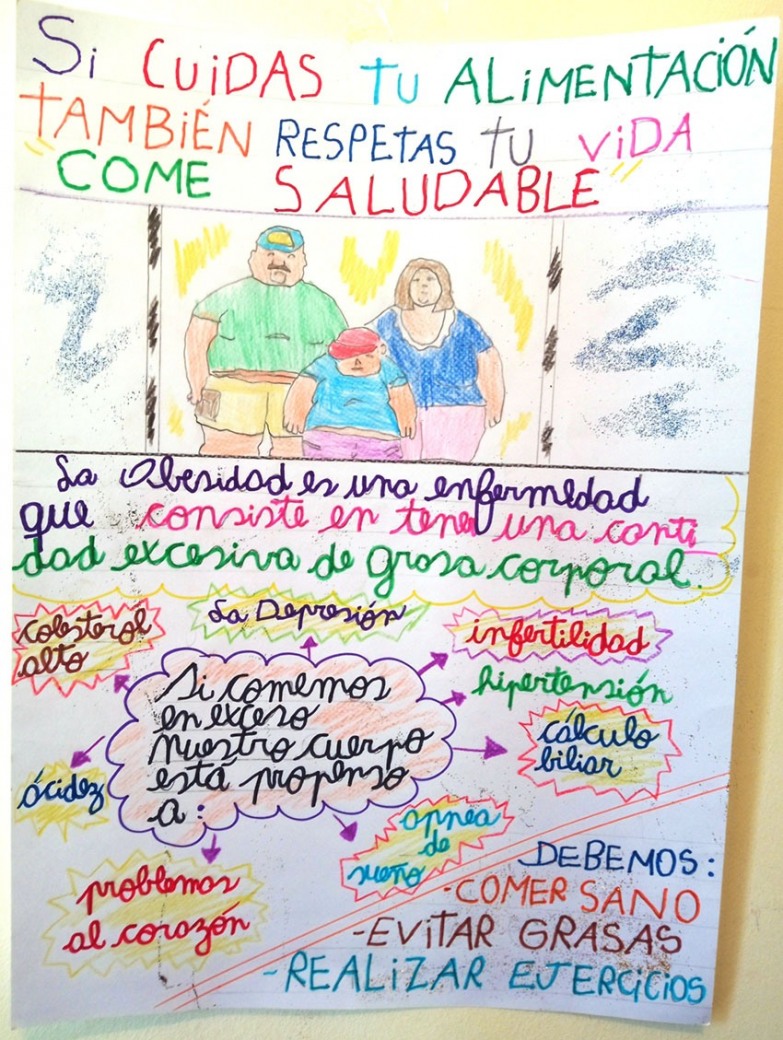 Si CUiDAS TU ALiMENTACIÓN
TAMBiÉN RESPETAS TU ViDA
"COME SALUDABLE"
La Obesidad es una enfermedad
que consiste en tener una canti
dad excesiva de grasa corporal.
colesterol
alto
La Depresión
infertilidad
hipertensión
Si comemos
en exceso
nuestro cuerpo
está propenso
a:
cálculo
biliar
ácidez
apnea
de
sueño
problemas
al corazón
DEBEMOS:
-COMER SANO
-EViTAR GRASAS
-REALiZAR EJERCiCiOS